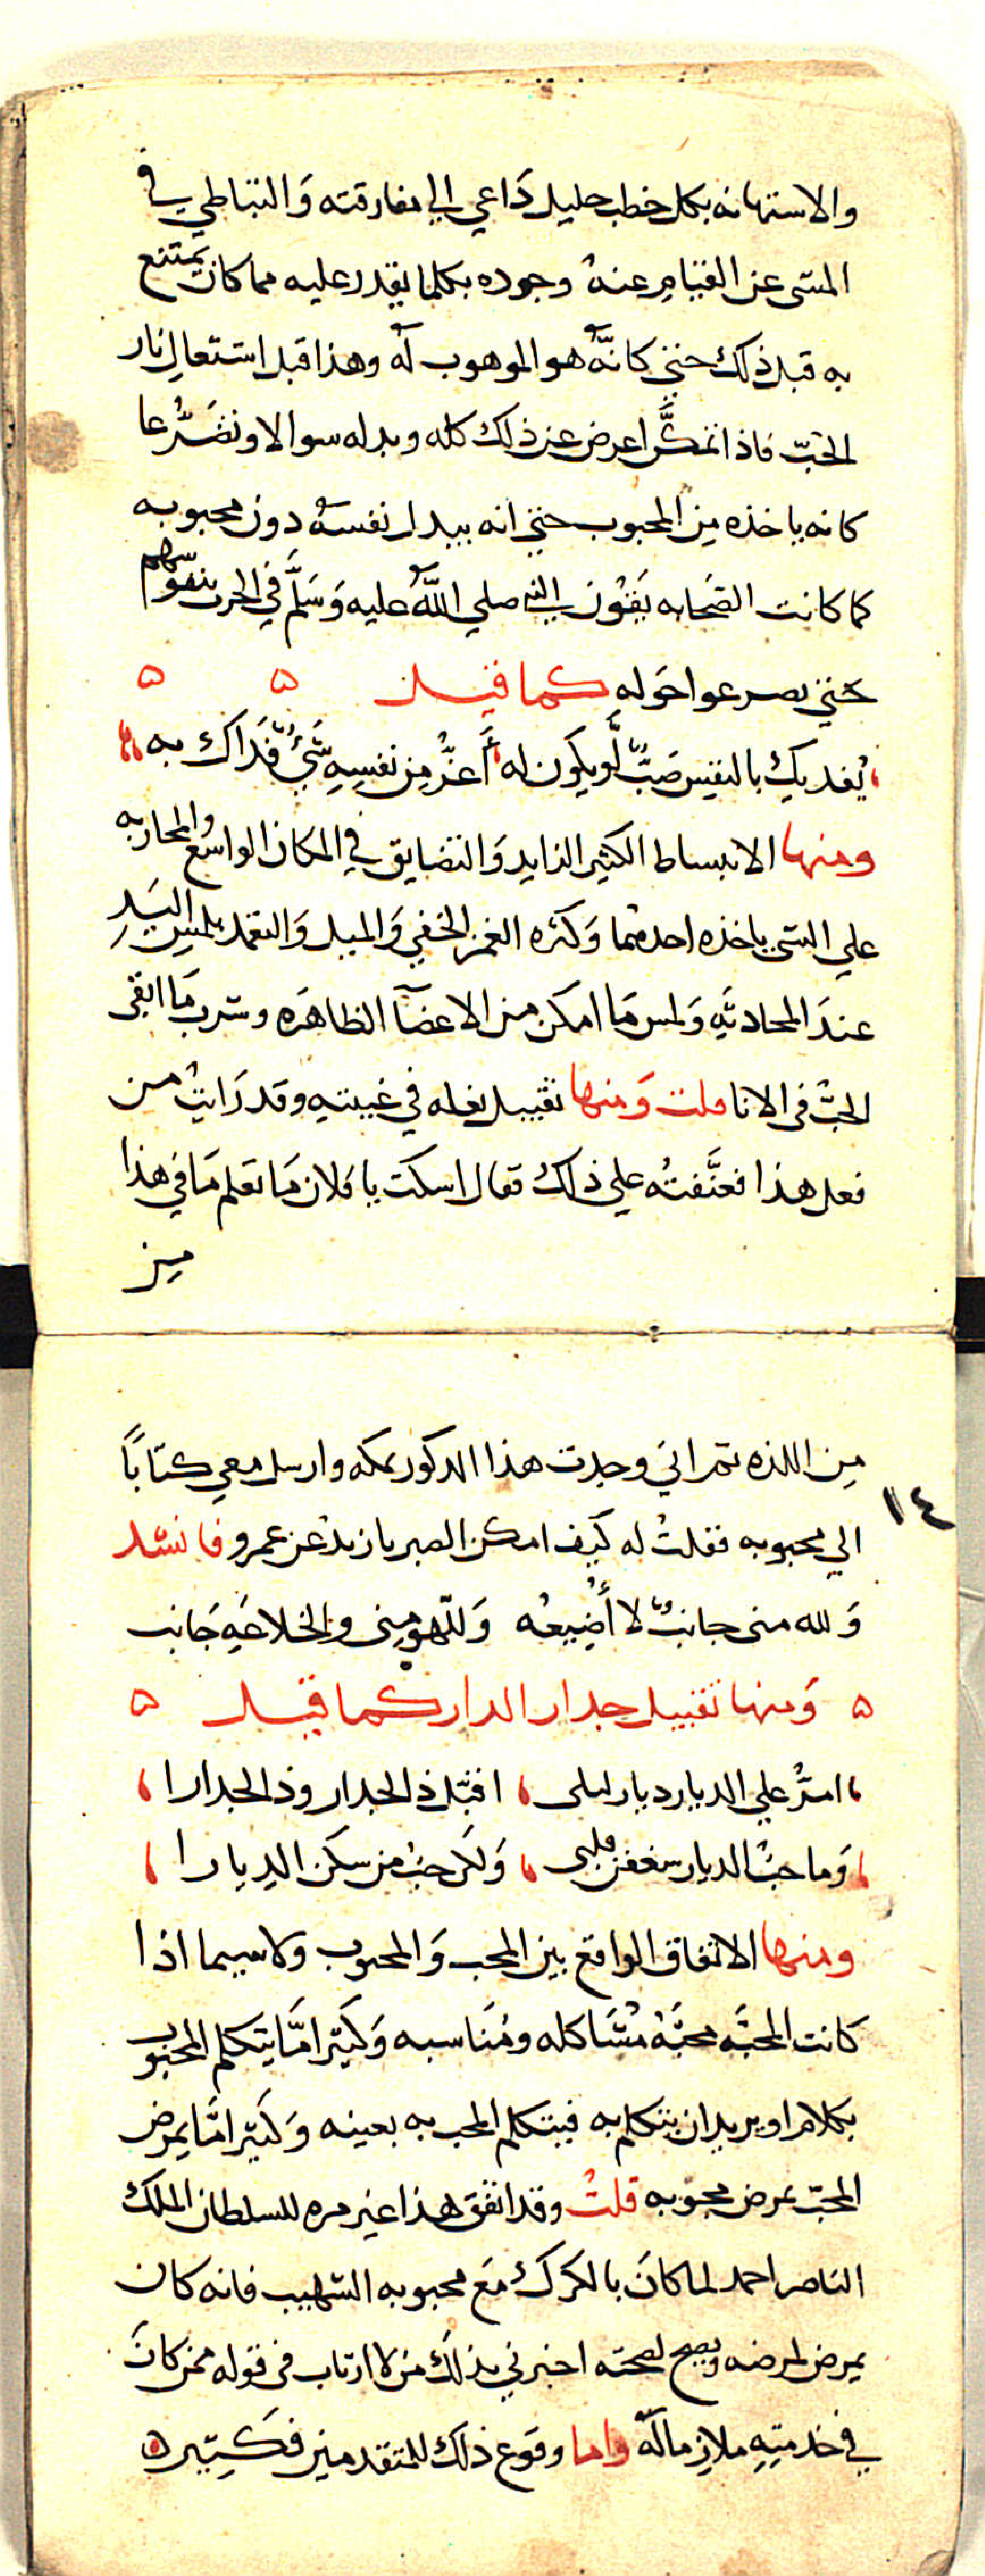 والاستهانه بكل خطب جليل داعي الي مفارقته وَالتباطي في
المشى عن القيام عنهُ وجوده بكلما يقدر عليه مما كان يمتنع
به قبل ذلك حتي كانهُ هو الموهوب لهُ وهذا قبل اشتعال نار
الحبّ فاذا تمكّن اعرض عن ذلك كله وبدله سوالا وتضرُّعا
كانه ياخذه مِن المحبوب حتي انه يبدل نفسَهُ دون محبوبه
كما كانت الصَحابه يَقُون النبي صلي اللهُ عليه وَسَلَّم في الحرب بنفوسهم
حَتي يصرعوا حَوله كما قيل ٥ ٥
يَفديك بالنفس صَبٌّ لَو يكون له أَعزُّ مِن نفسِهِ شَيءٌ فَدَاك به
ومنها الانبساط الكثير الزايد وَالتضايق في المكان الواسع والمحاربه
علي الشي ياخذه احدهما وَكثره الغمز الخفي وَالميل وَالتعمد بلمس اليَدِ
عندَ المحادثهِ وَلمس مَا امكن من الاعضآ الظاهَره وشرب مَا ابقى
الحبُّ في الانا قلت وَمنها تقبيل نعله في غيبتهِ وقد رَايتُ من
فعل هذا فعنَّفتُه علي ذلك فقال اسكت يا فلان مَا تعلم مَا في هذا
مِن
مِن اللذه ثم اني وجدت هذا المذكور بمكه وارسل معي كتابًا
١٤
الي محبوبه فقلتُ له كَيف امكن الصبر يا زيدُ عن عمرو فانشد
وَلله منى جانبٌ لا أُضِيعُه وَللّهو مِني والخلاعَةِ جَانب
٥ وَمنها تقبيل جدار الدار كما قيل ٥
امرُّ علي الديار ديار ليلى اقبّل ذا الجدار وذا الجدارا
وَما حبُّ الديار شغفن قلبي وَلكن حبُّ من سكن الديارا
ومنها الاتفاق الواقع بين المحب وَالمحبوب ولاسيما اذا
كانت المحبَّه محبَّهُ مُشَاكله ومُنَاسبه وَكثيرًا مَّا يتكلم المحبوب
بكلام او يريد ان يتكلم به فيتكلم المحب به بعينه وَكثيرًا مَّا يمرض
المحبّ بمرض محبوبه قلتُ وقد اتفق هذا غير مره للسلطان الملك
الناصر احمد لما كانَ بالكرك مَع محبوبه الشهيب فانه كان
يمرض لمرضه ويصح لصحته اخبرني بذلَك من لا ارتاب في قوله ممن كانَ
في خدمتِهِ ملازمًا لَهُ واما وقوع ذلك للمتقدمين فكثير ٥